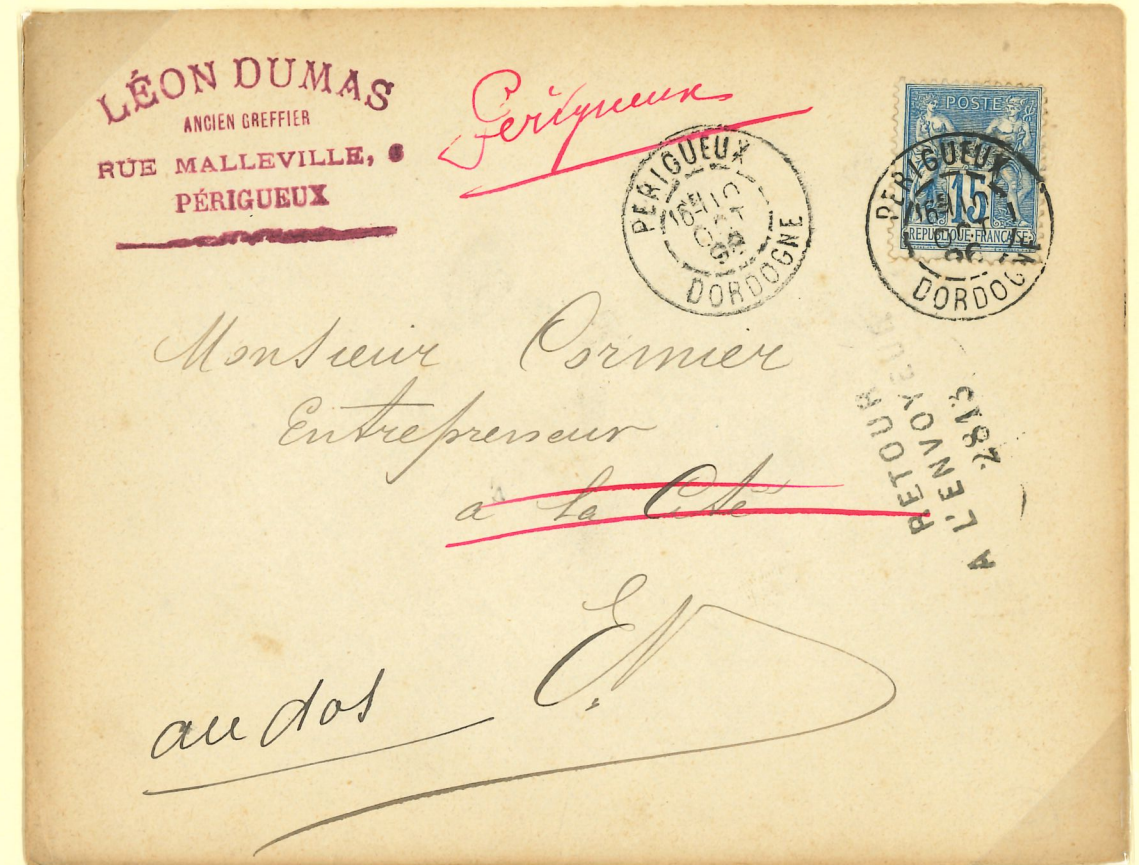 LÉON DUMAS
ANCIEN GREFFIER
RUE MALLEVILLE, 6
PÉRIGUEUX
Périgueux
PERIGUEUX
DORDOGNE
POSTE
15
REPUBLIQUE FRANÇAISE
PERIGUEUX
DORDOGNE
Monsieur Cormier
Entrepreneur
a la Cité
E.N
au dos
RETOUR
A L'ENVOYEUR
2813